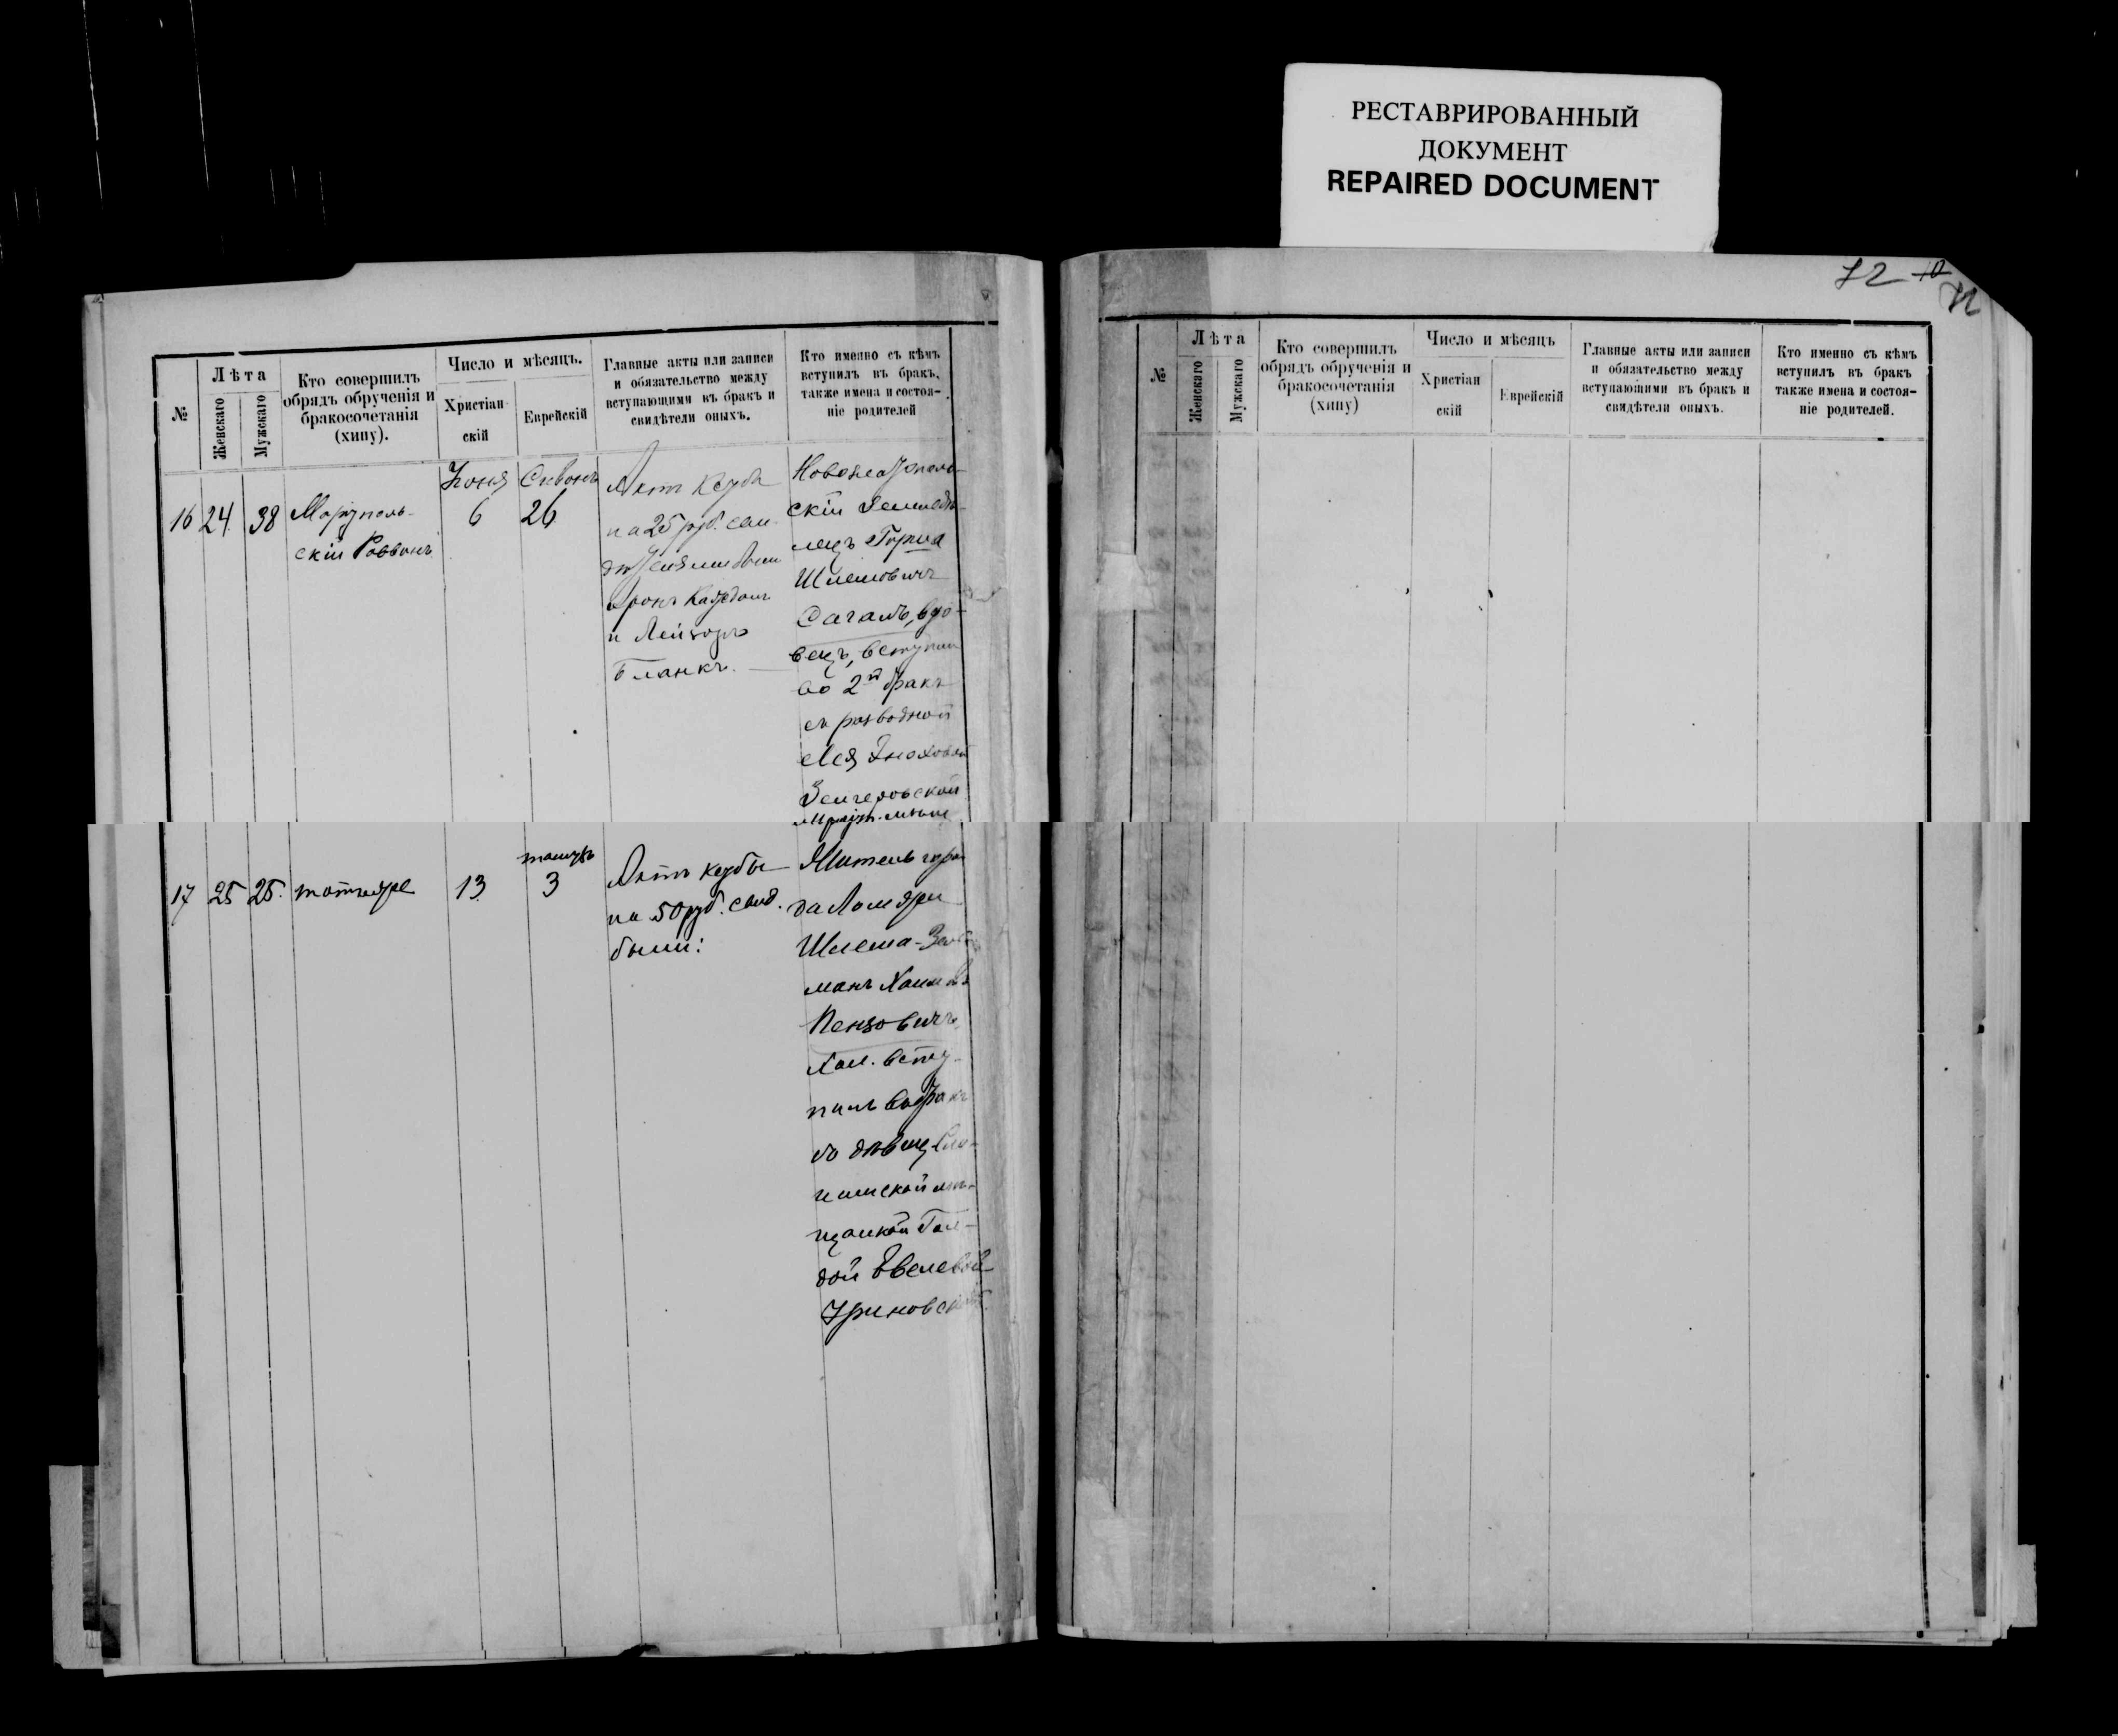 РЕСТАВРИРОВАННЫЙ
ДОКУМЕНТ
REPAIRED DOCUMENT
72
№
Лѣта
Женскаго
Мужскаго
Кто совершилъ
обрядъ обрученія и
бракосочетанія
(хипу).
Число и мѣсяцъ.
Христіан
скій
Еврейскій
Главные акты или записи
и обязательство между
вступающими въ бракъ и
свидѣтели оныхъ.
Кто именно съ кѣмъ
вступилъ въ бракъ,
также имена и состоя-
ніе родителей
16
24
38
Маріуполь-
скій Раввинъ
Іюня
6
Сивонъ
26
Актъ
на 25 руб. сви
Аронъ
и Лейзоръ
Бланкъ.
скій Земледѣ-
лецъ
Шлемовичъ
Сагаль, вдо-
вецъ, вступил
во 2й бракъ
съ разводной
Лея Эноховой
17
25
25.
тотъ же
13
тамузъ
3
Актъ
на 50 руб. свид.
были:
Житель горо
да
Шлема-Зел
манъ Хаимовъ
Пензовичъ,
Хол. всту-
пилъ въ бракъ
съ дѣвиц. Сло-
нимской мѣ-
щанкой Гол-
дой
№
Лѣта
Женскаго
Мужскаго
Кто совершилъ
обрядъ обрученія и
бракосочетанія
(хипу)
Число и мѣсяцъ
Христіан
скій
Еврейскій
Главные акты или записи
и обязательство между
вступающими въ бракъ и
свидѣтели оныхъ.
Кто именно съ кѣмъ
вступилъ въ бракъ
также имена и состоя-
ніе родителей.